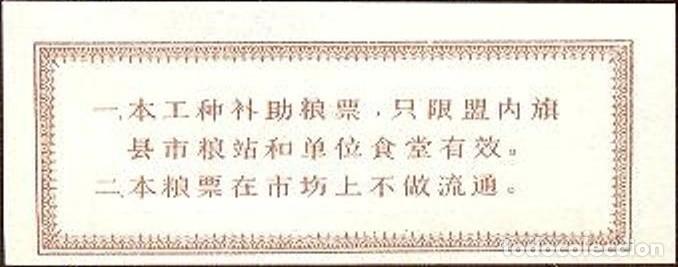 一、本工种补助粮票，只限盟内旗
县市粮站和单位食堂有效。
二、本粮票在市场上不做流通。
todocoleccion